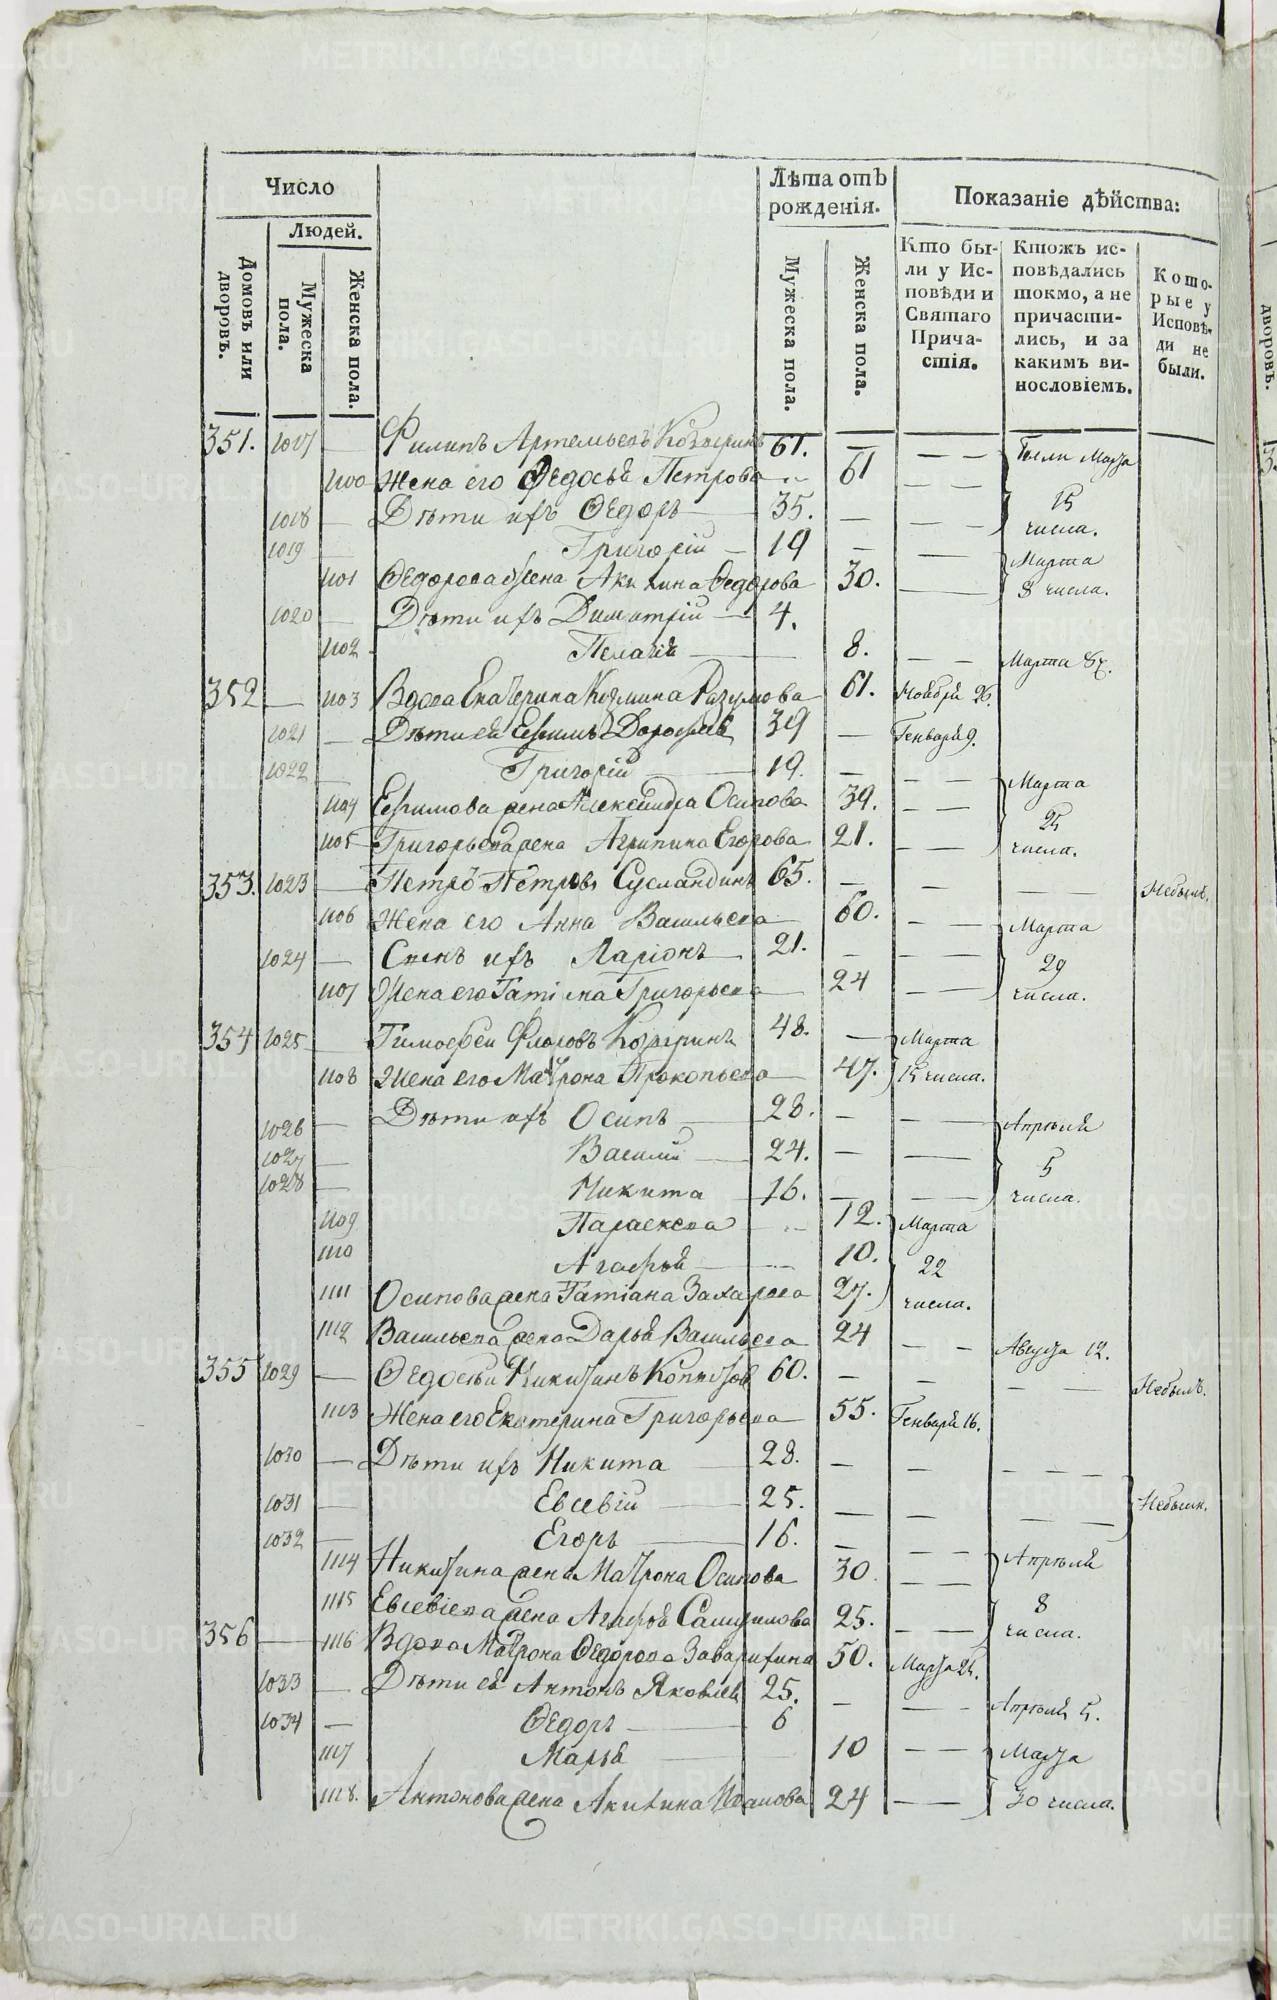 METRIKI.GASO-URAL.RU
Число
Лѣта отъ рожденія.
Показаніе дѣйства:
Людей.
Домовъ или дворовъ.
Мужеска пола.
Женска пола.
Мужеска пола.
Женска пола.
Кто бы-
ли у Ис-
повѣди и
Святаго
Прича-
стія.
Ктожъ ис-
повѣдались
токмо, а не
причасти-
лись, и за
какимъ ви-
нословіемъ.
Кото-
рые у
Исповѣ-
ди не
были.
дворовъ.
351. 1017 — Филипъ Артемьевъ 61. — — — были Марта
1100 Жена его Ѳедосья Петрова 61 — — 15
1018 — Дѣти ихъ Ѳедоръ 35. — — — числа.
1019 — Григорій — 19 — — Марта
1101 Ѳедорова жена Акилина Ѳедорова 30. — 8 числа.
1020 — Дѣти ихъ Димитрій — 4.
1102 Пелагія — 8. — — Марта
352 — 1103 Вдова Екатерина Козмина Разумова 61. Ноября 26.
1021 — Дѣти ея Ефимъ Дорофеев 39 — Генваря 9.
1022 — Григорій — 19. — — — Марта
1104 Ефимова жена Александра Осипова 39. — — 25
1105 Григорьева жена Агрипина Егорова 21. — — числа.
353. 1023 — Петръ Петровъ Сусландинъ 65. — — — — — Небылъ.
1106 Жена его Анна Васильева — 60. — — Марта
1024 — Сынъ ихъ Ларіонъ — 21. — — — 29
1107 Жена его Татіана Григорьева — 24 — — числа.
354 1025 — Тимоѳей Флоровъ 48. — Марта
1108 Жена его Матрона Прокопьева — 47. 15 числа.
1026 — Дѣти ихъ Осипъ — 28. — — — Апрѣля
1027 — Василій — 24. — — — 5
1028 — Никита — 16. — — — числа.
1109 Параскева — 12. Марта
1110 Агафья — 10. 22
1111 Осипова жена Татіана Захарова 27. числа.
1112 Васильева жена Дарья Васильева 24 — — Августа 12.
355 1029 — Ѳедосѣй Никитинъ 60. — — — — Небылъ.
1113 Жена его Екатерина Григорьева — 55. Генваря 16.
1030 — Дѣти ихъ Никита — 28. — — — — —
1031 — Евсевій — 25. — — — — Небыли.
1032 — Егоръ — 16. — — — Апрѣля
1114 Никитина жена Матрона Осипова 30. — — 8
1115 Евсевіева жена Агафья Самуилова 25. — — числа.
356 — 1116 Вдова Матрона Ѳедорова 50. Марта 25.
1033 — Дѣти ея Антонъ Яковлев 25. — — — Апрѣля 5.
1034 — Ѳедоръ — 6
1117 Марья — 10 — — Марта
1118. Антонова жена Акилина 24 — — 30 числа.